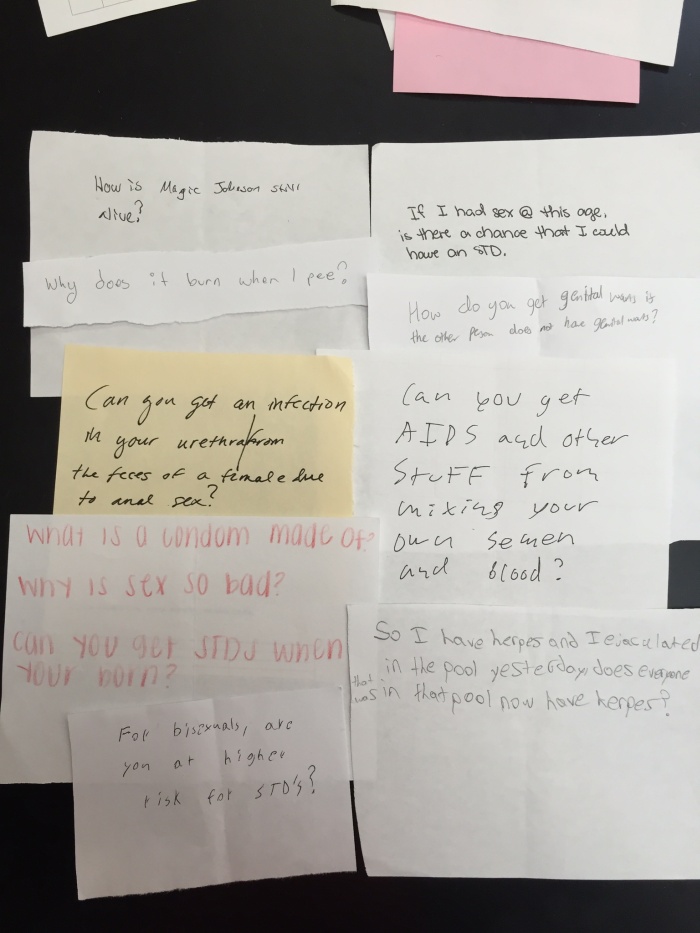 How is Magic Johnson still
Alive?
Why does it burn when I pee?
If I had sex @ this age,
is there a chance that I could
have an STD.
How do you get genital warts if
the other person does not have genital warts?
Can you get an infection
in your urethra from
the feces of a female due
to anal sex?
Can you get
AIDS and other
Stuff from
mixing your
own semen
and blood?
What is a condom made of?
Why is sex so bad?
Can you get STDs when
your born?
So I have herpes and I ejaculated
in the pool yesterday, does everyone
that was in that pool now have herpes?
For bisexuals, are
you at higher
risk for STD's?